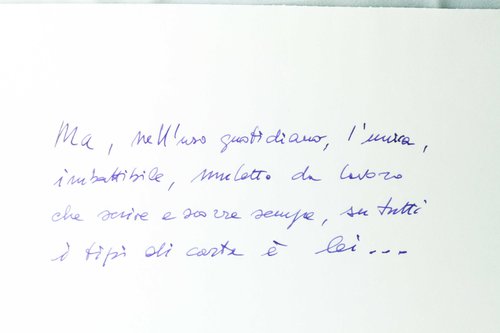 Ma, nell'uso quotidiano, l'unica,
imbattibile, muletto da lavoro
che scrive e scorre sempre, su tutti
i tipi di carta è lei...